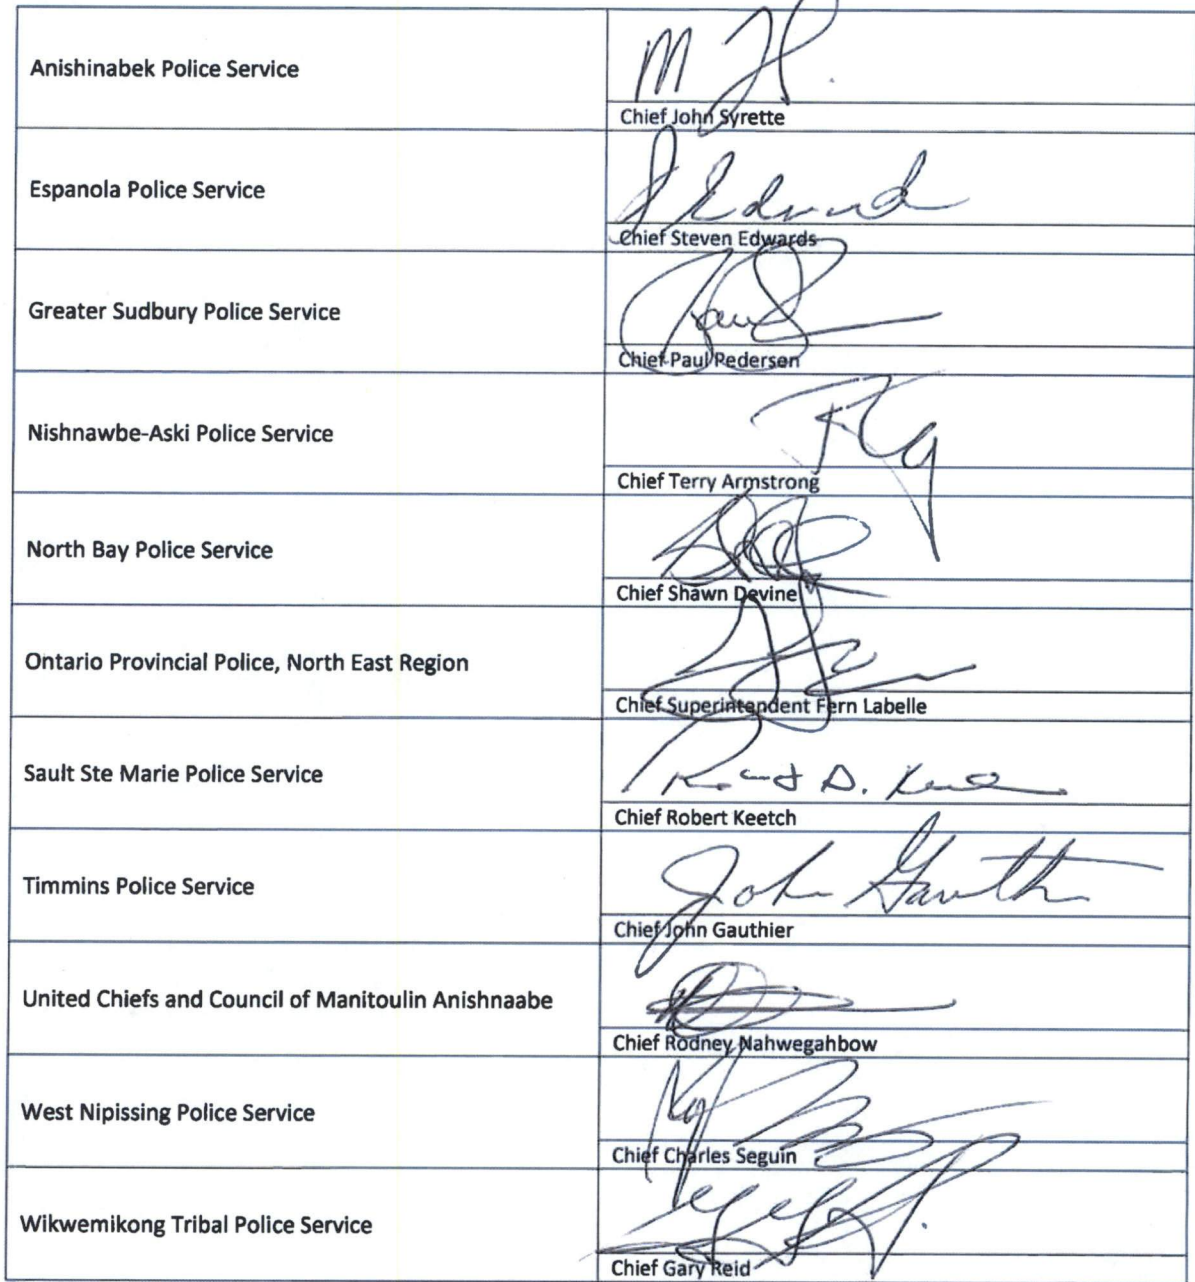 Anishinabek Police Service
Chief John Syrette
Espanola Police Service
Chief Steven Edwards
Greater Sudbury Police Service
Chief Paul Pedersen
Nishnawbe-Aski Police Service
Chief Terry Armstrong
North Bay Police Service
Chief Shawn Devine
Ontario Provincial Police, North East Region
Chief Superintendent Fern Labelle
Sault Ste Marie Police Service
Chief Robert Keetch
Timmins Police Service
John
Chief John Gauthier
United Chiefs and Council of Manitoulin Anishnaabe
Chief Rodney Nahwegahbow
West Nipissing Police Service
Chief Charles Seguin
Wikwemikong Tribal Police Service
Chief Gary Reid